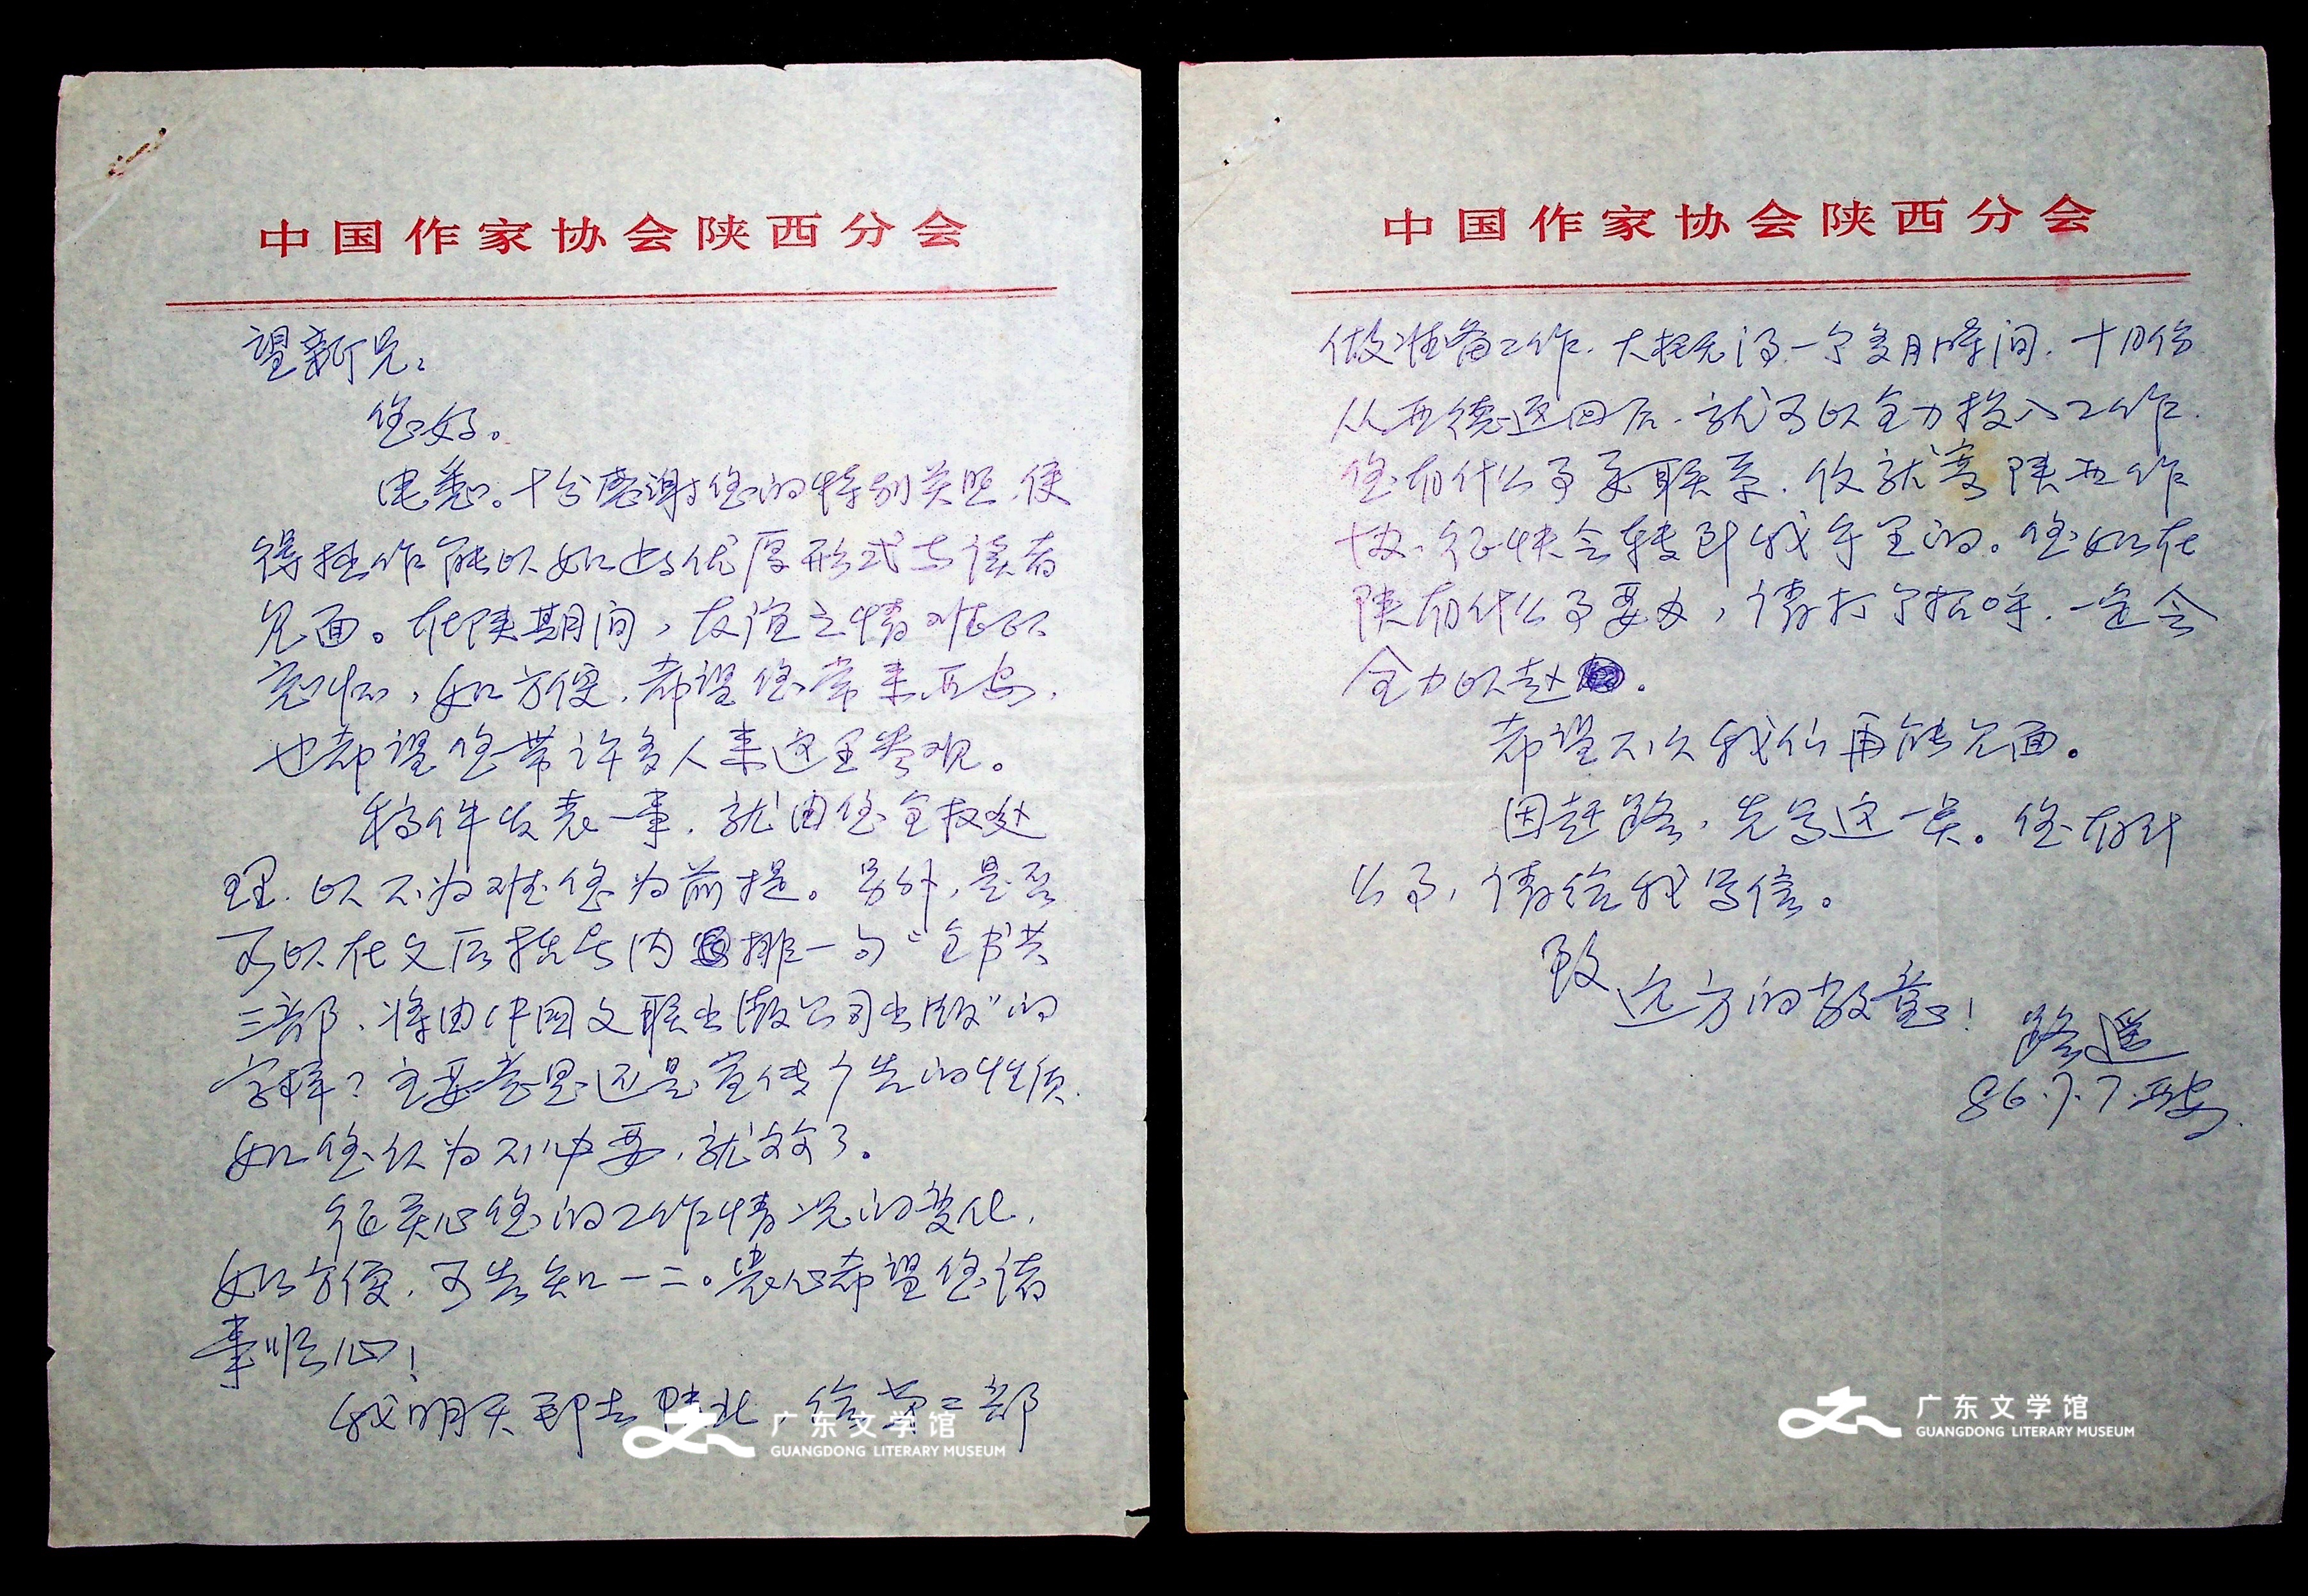 中国作家协会陕西分会
望新兄：
您好。
电悉。十分感谢您的特别关照，使
得拙作能以如此优厚形式与读者
见面。在陕期间，友谊之情难以
忘怀，如方便，希望您常来西安，
也希望您带许多人来这里参观。
稿件发表一事，就由您全权处
理，以不为难您为前提。另外，是否
可以在文后括号内排一句“全书共
三部，将由中国文联出版公司出版”的
字样？主要意思还是宣传广告的性质，
如您认为不必要，就算了。
很关心您的工作情况的变化，
如方便，可告知一二。衷心希望您诸
事顺心！
我明天即去陕北，给第二部
广东文学馆
GUANGDONG LITERARY MUSEUM
中国作家协会陕西分会
做准备工作，大概元得一个多月时间，十月份
从西德返回后，就可以全力投入工作。
您有什么事来联系，仍就寄陕西作
协，很快会转到我手里的。您如在
陕有什么事要办，请打个招呼，一定会
全力以赴。
希望不久我们再能见面。
因赶路，先写这一些。您有什
么事，请给我写信。
致
远方的敬意！
路遥
86.7.7.西安.
广东文学馆
GUANGDONG LITERARY MUSEUM